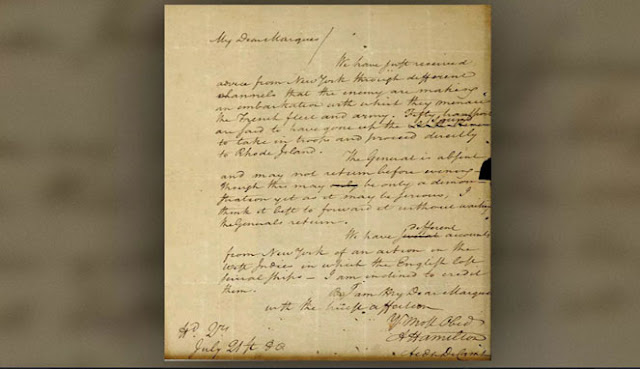 My Dear Marquis/
We have just received
advice from New York through different
channels that the enemy are making
an embarkation with which they menace
the French fleet and army. Fifty transports
are said to have gone up the Sound
to take in troops and proceed directly
to Rhode Island.
The General is absent
and may not return before evening
Though this may only be only a demon-
stration yet as it may be serious, I
think it best to forward it without waiting
the Generals return.
different
We have several accounts
from New York of an action in the
West Indies in which the English lost
several ships — I am inclined to credit
them.
I am My Dear Marquis
with the truest affection
Yr Most Obed
A Hamilton
Aide De Camp
Hd. Qrs
July 21st 80